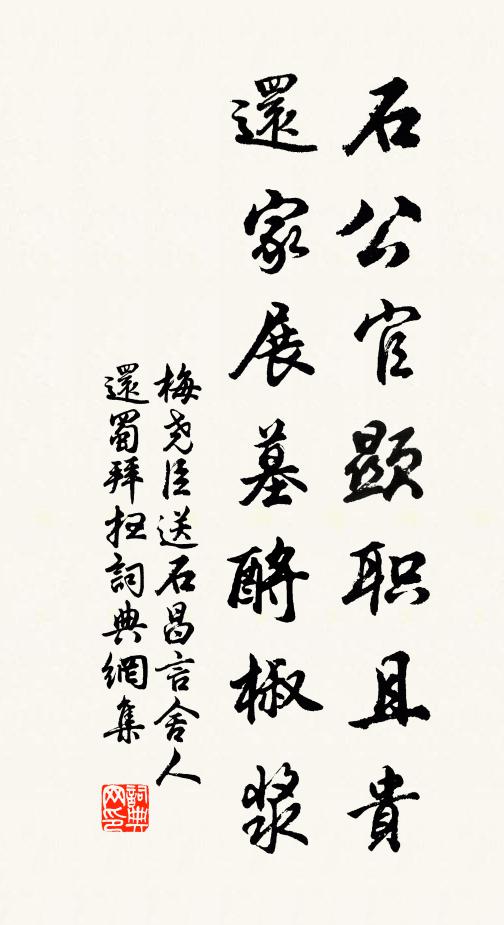 石公官顯职且貴
還家展墓酹椒漿
梅尧臣送石昌言舍人
還蜀拜扫詞典網集
詞典网印